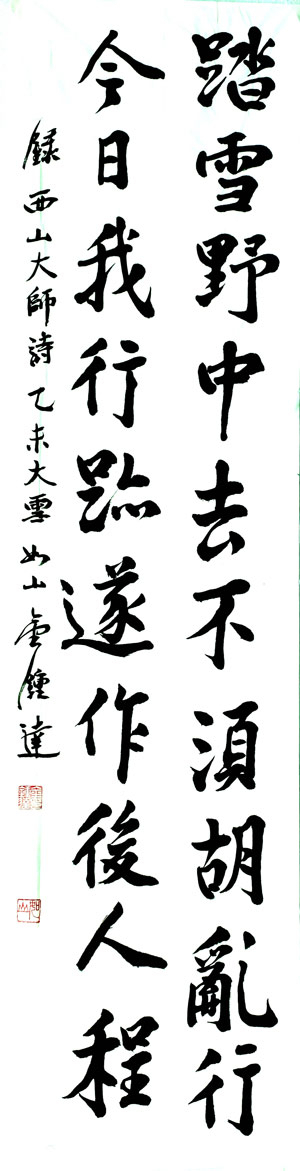 踏雪野中去不須胡亂行
今日我行跡遂作後人程
錄西山大師詩乙未大雪如山金鍾達